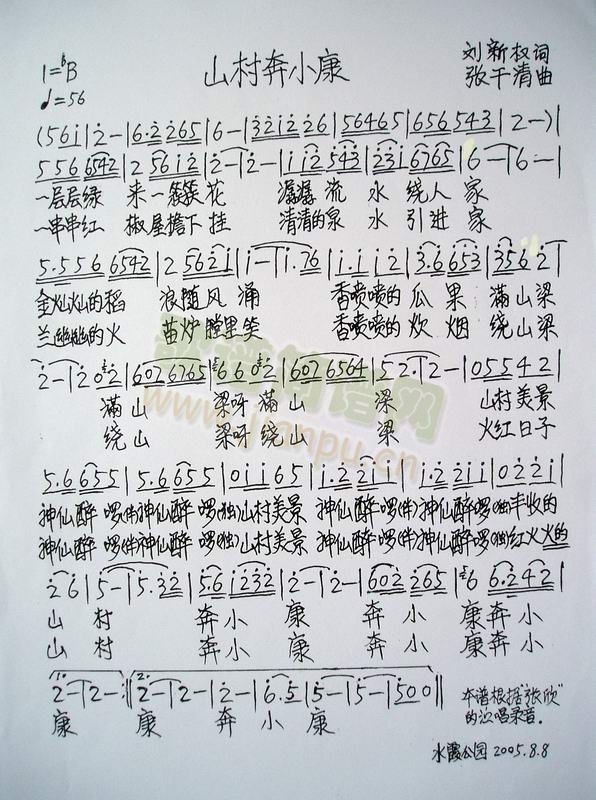 山村奔小康
1=♭B
♩=56
刘新权词
张千清曲
(561̇|2̇-|6·2̇2̇65|6-|3̇2̇1̇2̇2̇6|56465|656543|2-)|
556 6542|2 561̇2̇|2̇-|2̇-|1̇1̇2̇ 5̇4̇3̇|2̇3̇1̇ 6765|6-|6-|
一层层绿 来一簇簇花 潺潺流水绕人家
一串串红 椒屋檐下挂 清清的泉水引进家
5·556 6542|2 562̇1̇|1̇-|1̇·76|1̇·1̇1̇2̇|3·6653|356 2̇|
金灿灿的稻 浪随风涌 香喷喷的瓜果 满山梁
兰幽幽的火 苗炉膛里笑 香喷喷的炊烟 绕山梁
2̇-|2̇ 02̇|602 6765|6 6 02̇|602 6564|5 2·|2-|05542|
满山 梁呀满山 梁 山村美景
绕山 梁呀绕山 梁 火红日子
5·6655|5·6655|01̇1̇65|1̇·2̇2̇1̇1̇|1̇·2̇2̇1̇1̇|02̇2̇1̇|
神仙醉啰(伴)神仙醉啰(独)山村美景 神仙醉啰(伴)神仙醉啰(独)丰收的
神仙醉啰(伴)神仙醉啰(独)山村美景 神仙醉啰(伴)神仙醉啰(独)红火火的
2̇6|5-|5·3̇2̇|5·6 1̇2̇3̇2̇|2̇-|2̇-|602̇ 2̇65|6 6·2̇4̇2̇|
山村 奔小康 奔小康奔小
山村 奔小康 奔小康奔小
1. 2̇-|2̇-:‖2. 2̇-|2̇-|2̇-|6·5|5-|5-|500‖
康 康 奔小康
本谱根据"张欣"
的演唱录音.
水霞公园 2005.8.8
www.jianpu.cn